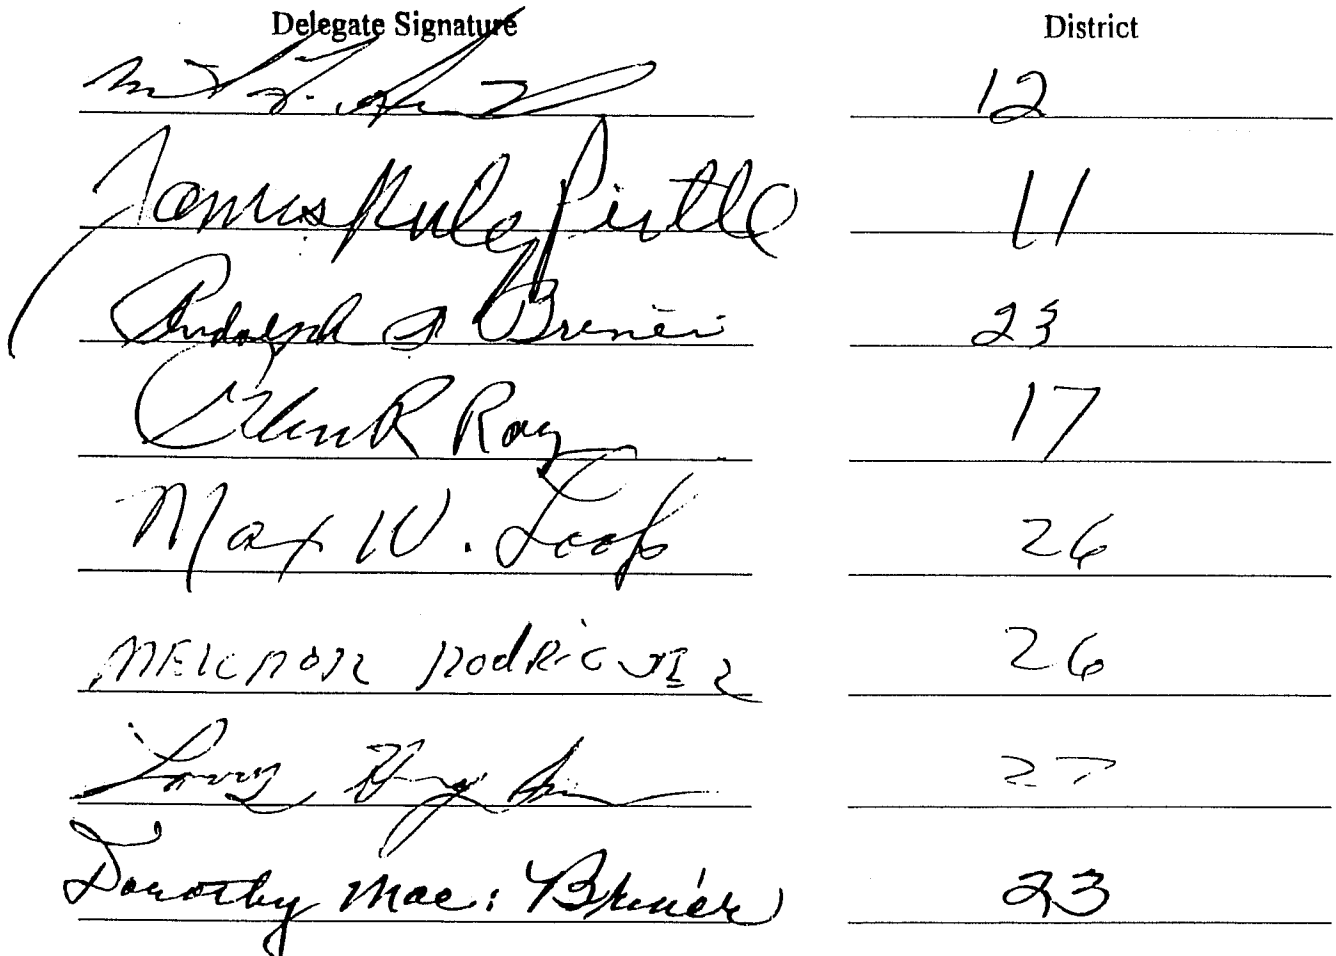 Delegate Signature District
12
James Pirtle 11
Rudolph Brenei 23
Glen R Ray 17
Max W. Loof 26
MELCHOR RODRIGUEZ 26
Larry 27
Dorothy Mae: Brenér 23